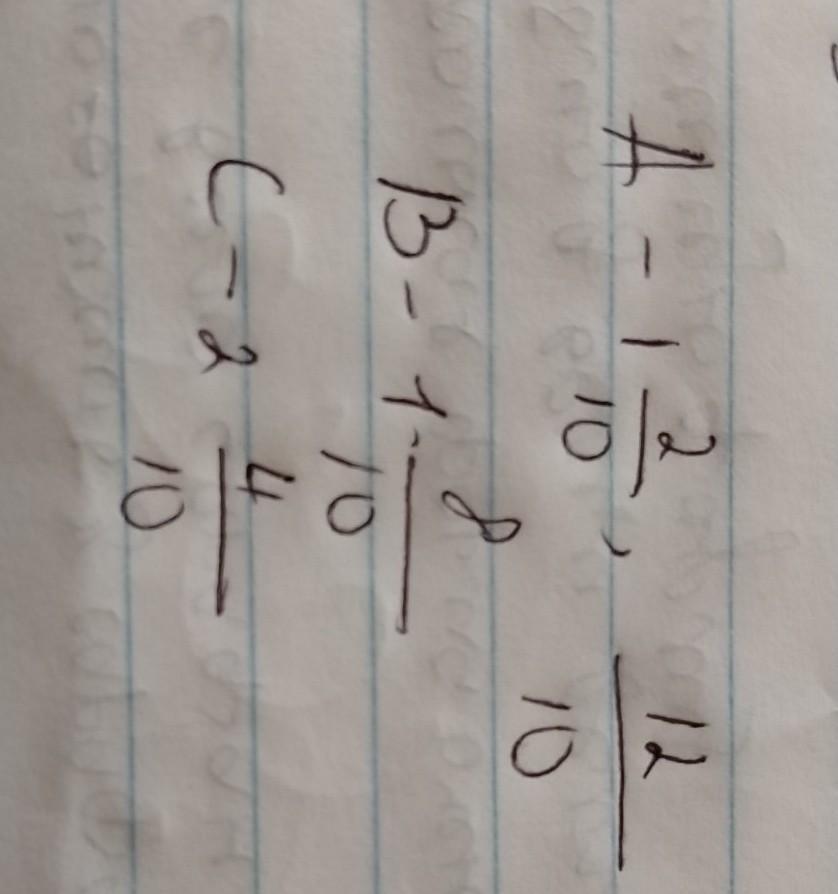 A - 1 2/10 , 12/10
B - 1 8/10
C - 2 4/10